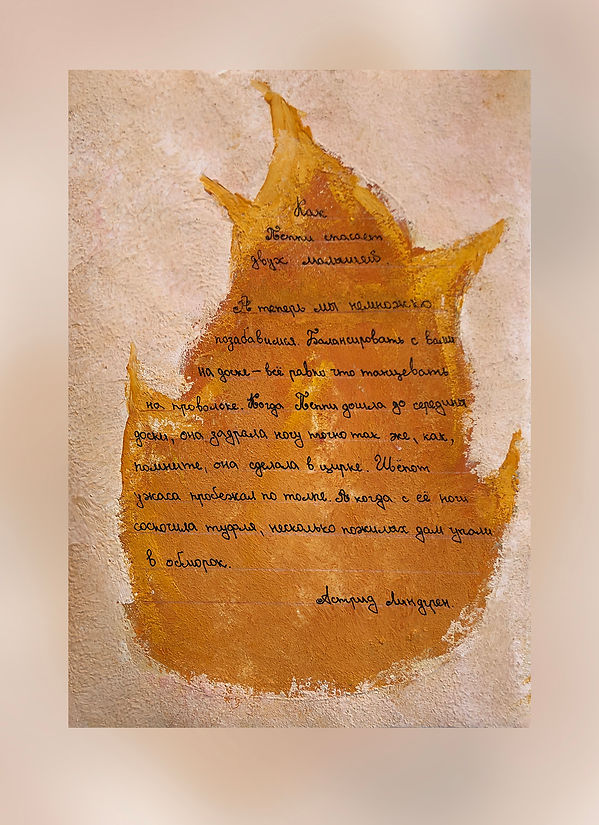 Как
Пеппи спасает
двух малышей
А теперь мы немножко
позабавимся. Балансировать с вами
на доске – всё равно что танцевать
на проволоке. Когда Пеппи дошла до середины
доски, она задрала ногу точно так же, как,
помните, она сделала в цирке. Шёпот
ужаса пробежал по толпе. А когда с её ноги
соскочила туфля, несколько пожилых дам упали
в обморок.
Астрид Линдгрен.